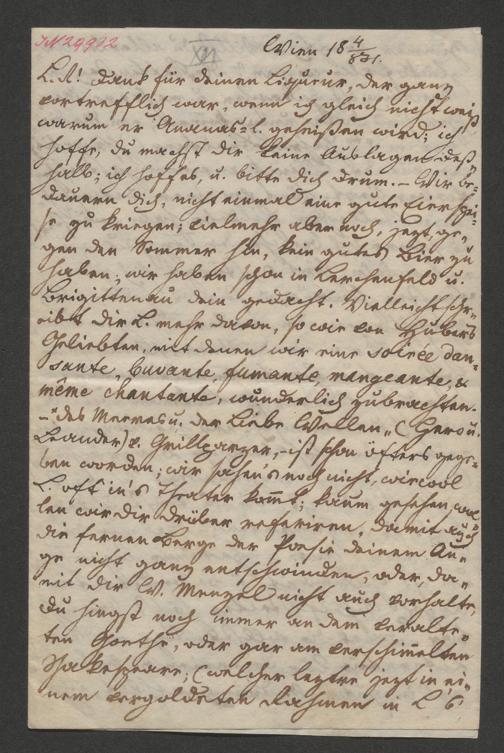 IN 29922
XIV
Wien 18 4/8 31.
L. A! Dank für deinen Liqueur, der ganz
vortrefflich war, wenn ich gleich nicht weiß
warum er Ananas=L. geheißen wird; ich
hoffe, du machst dir keine Auslagen deß=
halb; ich hoffe es, u. bitte dich drum. – Wir be=
dauern dich, nicht einmal eine gute Eierspei=
se zu kriegen; vielmehr aber noch, jezt, ge=
gen den Sommer hin, kein gutes Bier zu
haben; wir haben schon in Lerchenfeld u.
Brigittenau dein gedacht. Vielleicht schr=
eibt dir L. mehr davon, so wie von Hubers
Geliebten, mit denen wir eine soirée dan=
sante, buvante, fumante, mangeante, &
même chantante, wunderlich zubrachten.
– "Des Meeres u. der Liebe Wellen" (Hero u.
Leander) v. Grillparzer, ist schon öfters gege=
ben worden; wir sahen's noch nicht, wiewol
L. oft in's Theater kommt; kaum gesehen, wol=
len wir dir drüber referiren, damit auch
die fernen Berge der Poesie deinem Au=
ge nicht ganz entschwinden, oder da=
mit dir W. Menzel nicht auch vorhalte,
du hingst noch immer an dem veralte=
ten Goethe, oder gar am verschimmelten
Shakespeare; (welcher leztre jezt in ei=
nem vergoldeten Rahmen in L's